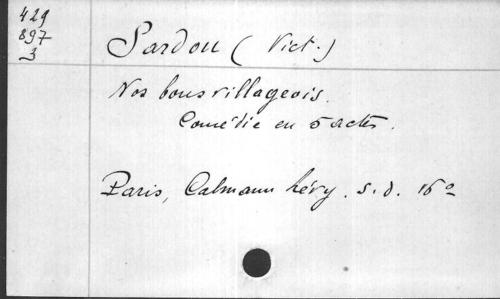 429
897
3
Sardou (Vict.)
Nos bons villageois.
Comédie en 5 actes.
Paris, Calmann Lévy. s.d. 16°